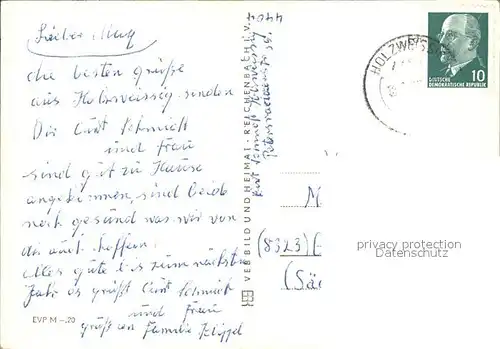 Lieber Max
die besten Grüße
aus Holzweissig senden
Dir Curt Schmidt
und Frau
sind gut zu Hause
angekommen, sind beide
noch gesund was wir von
dir auch hoffen.
Alles gute bis zum nächsten
Jahr es grüßt Curt Schmidt
und Frau
grüß an Familie
EVP M –.20
VEB BILD UND HEIMAT · REICHENBACH I. V.
4404
Curt Schmidt Holzweissig
HOLZWEISSIG
DEUTSCHE
DEMOKRATISCHE REPUBLIK
10
M
(8323)
(Sä
privacy protection
Datenschutz